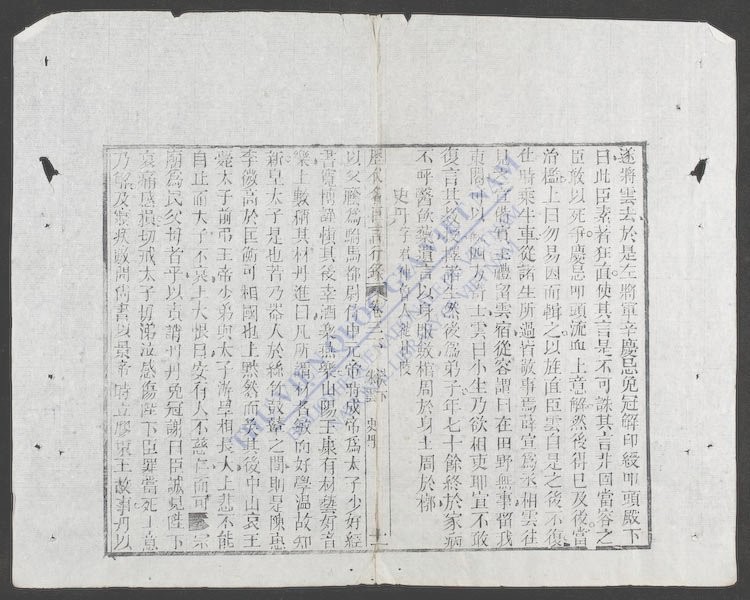 遂將雲去於是左將軍辛慶忌免冠解印綬叩頭殿下
曰此臣素著狂直使其言是不可誅其言非固當容之
臣敢以死爭慶忌叩頭流血上意解然後得已及後當
治檻上曰勿易因而輯之以旌直臣雲自是之後不復
仕時乘牛車從諸生所過皆敬事焉薛宣為丞相雲往
見之宣備賓主禮留雲宿從容謂曰在田野無事留我
東閤可以觀四方奇士雲曰小生乃欲相吏耶宣不敢
復言其教授擇諸生然後為弟子年七十餘終於家病
不呼醫飲藥遺言以身服斂棺周於身土周於槨
史丹 字君
歷代名臣言行錄 卷二 史丹
以父廕為駙馬都尉侍中元帝時成帝為太子少好經
書寬博謹慎其後幸酒樂燕樂山陽王康有材藝好音
樂上數稱其材丹進曰凡所謂材者敏而好學溫故知
新皇太子是也若乃器人於絲竹鼓鼙之間則是陳惠
李微高於匡衡可相國也上默然而笑其後中山哀王
薨太子前弔王帝少弟與太子游學相長人上悲不能
自止而太子不哀上大恨曰安有人不慈仁而可 宗
廟為民父母者乎以責謂丹丹免冠謝曰臣誠見陛下
哀痛感損切戒太子勿涕泣感傷陛下臣罪當死上意
乃解及寢疾數問尚書以景帝時立膠東王故事丹以